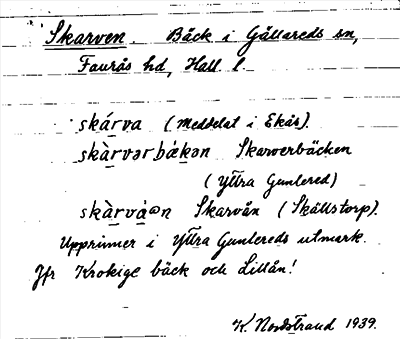 Skarven. Bäck i Gällareds sn,
Faurås hd, Hall. l.
skárva (Meddelat i Ekås).
skàrvərbǽkən Skarverbäcken
(Yttra Gunlered)
skàrvá@n Skarvån (Skällstorp).
Upprinner i Yttra Gunlereds utmark.
Jfr Krokige bäck och Lillån!
K. Nordstrand 1939.